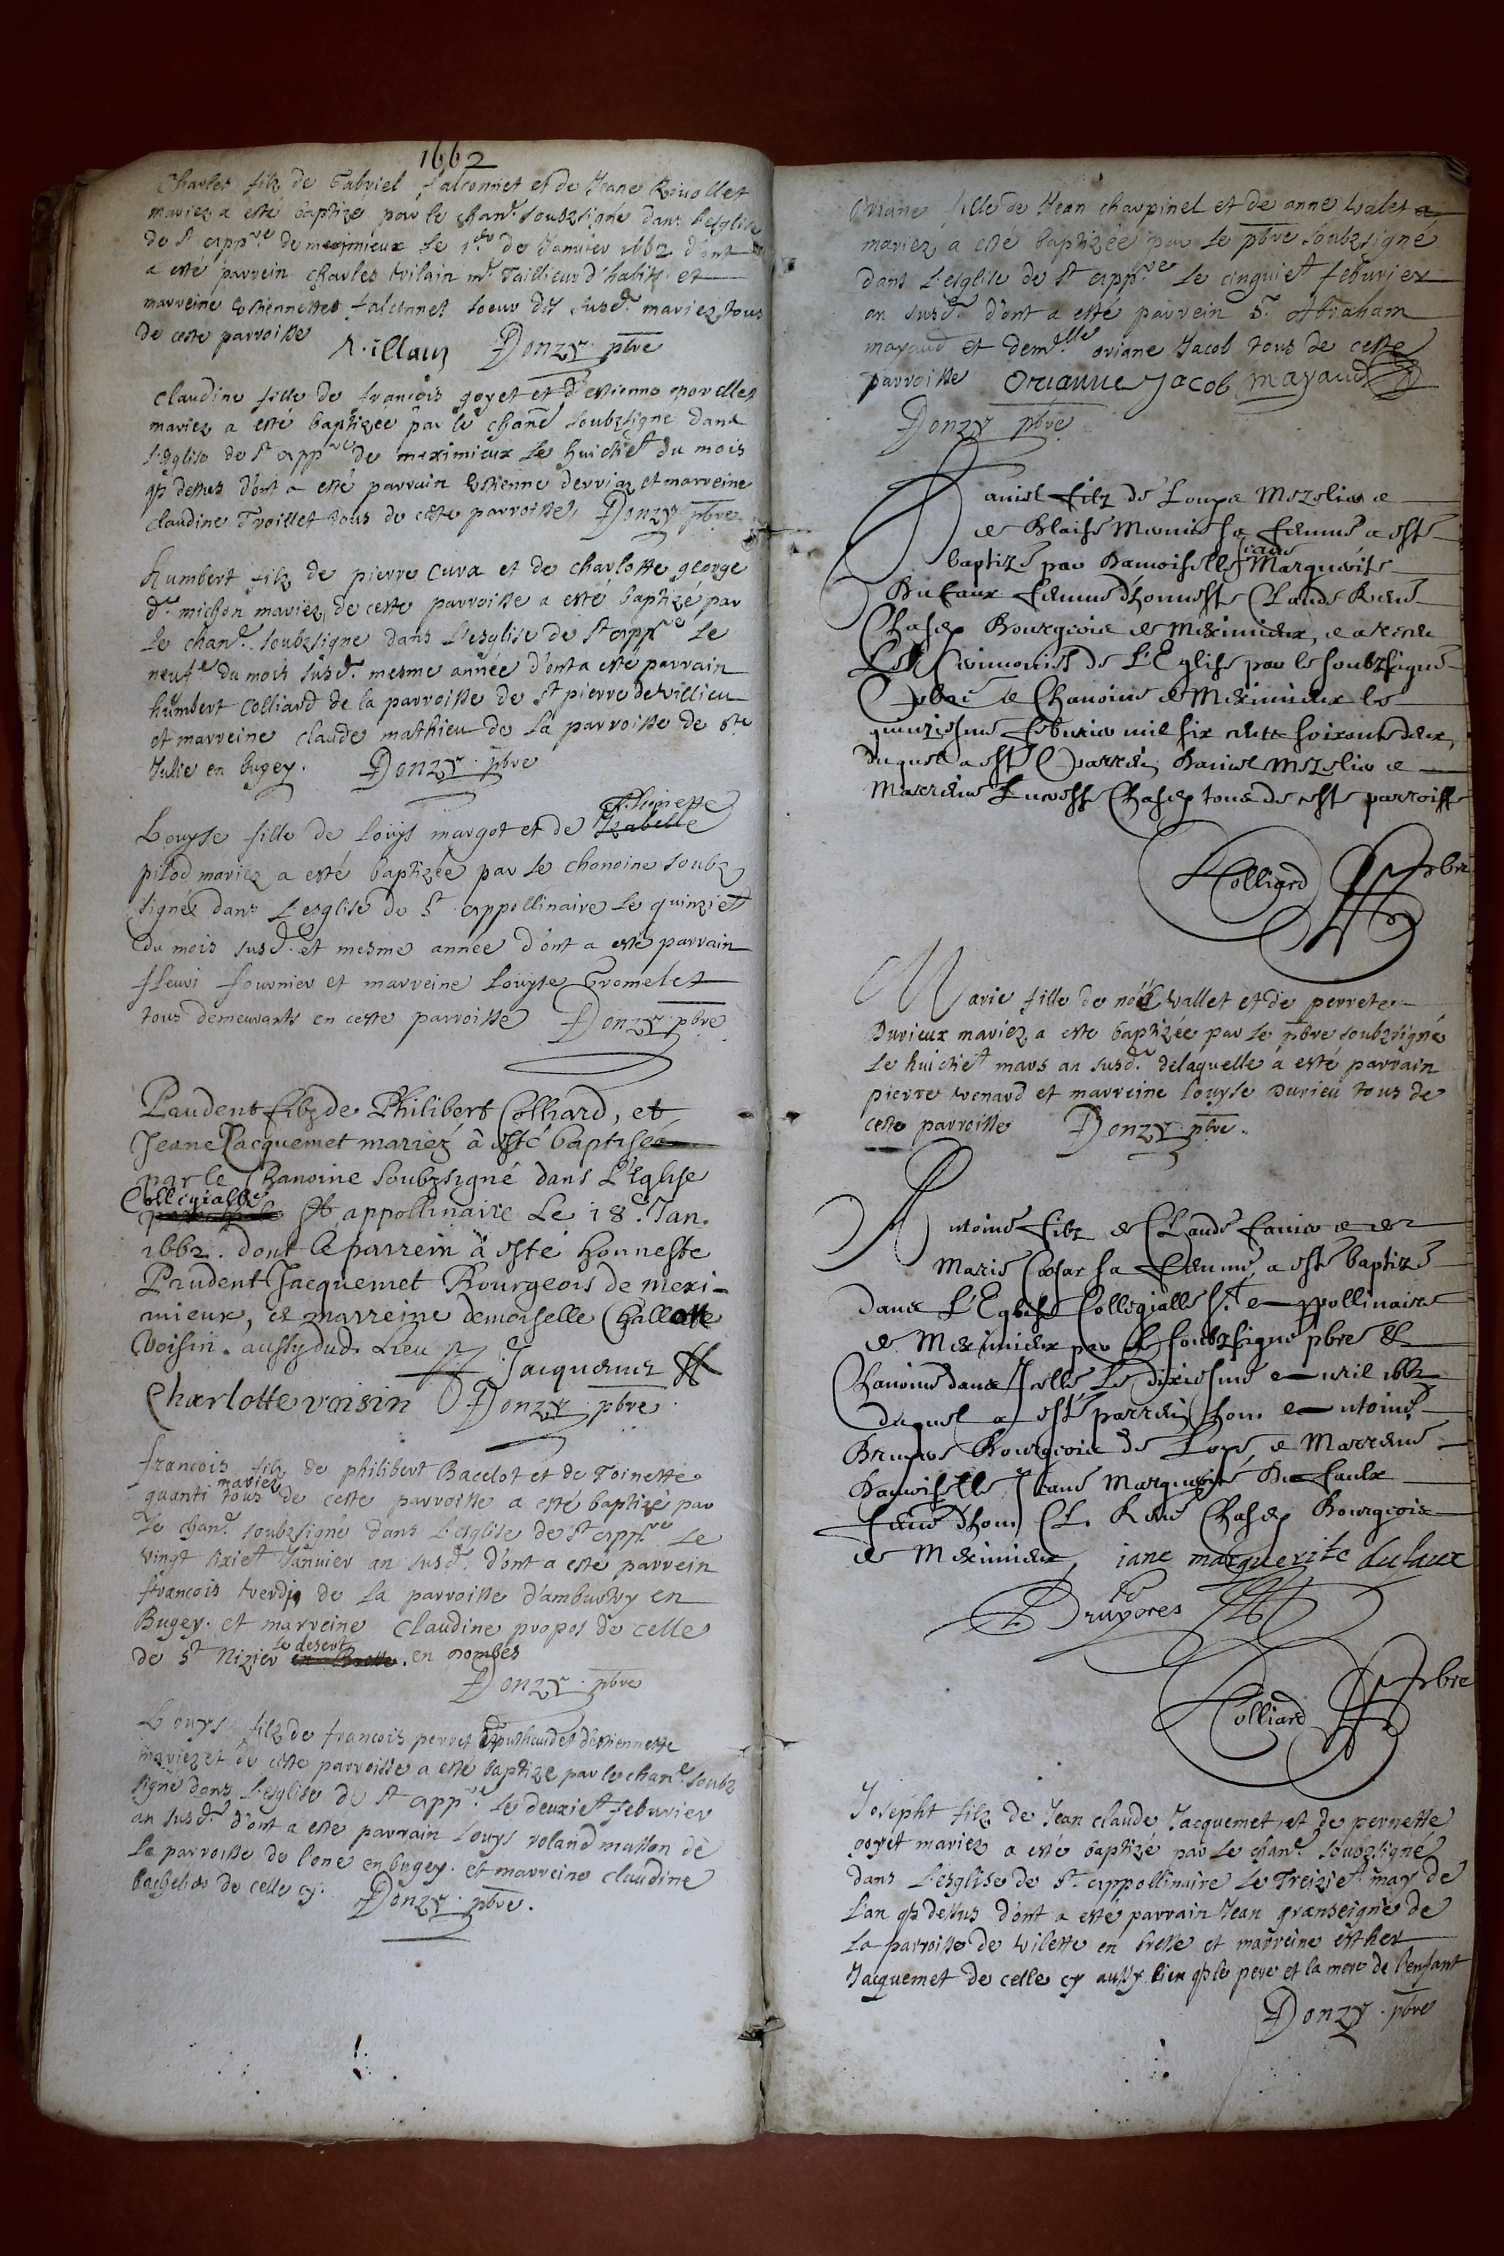 1662
Charles filz de Gabriel falconnet et de Jeane Rivollet
mariez a esté baptizé par le chan.e soubzsigné dans l'esglise
de St app.re de meximieux le 1.er de Januier 1662 d'ont
a esté parrein charles vilain m.e Tailleur d'habitz et
marreine Estiennette falconnet soeur des susd. mariez tous
de ceste parroisse
Donzy pbre
claudine fille de francois goyet et d'estienne morellet
mariez a esté baptizée par le chane soubzsigné dans
l'esglise de St app.re de meximieux le huictie.t du mois
q dessus d'ont a esté parrain Estienne derriaz et marreine
claudine Troillet tous de ceste parroisse, Donzy pbre
humbert filz de pierre Cura et de charlotte george
d. michon mariez, de ceste parroisse a esté baptizé par
le chan.e soubzsigné dans l'esglise de St app.re le
neuf.e du mois susd. mesme année d'ont a este parrain
humbert Colliard de la parroisse de St pierre de villieu
et marreine claude mathieu de la parroisse de ste
Julie en bugey. Donzy pbre
Louyse fille de Loüys margot et de Izabelle
pilod mariez a esté baptizée par le chanoine soubz
signé dans l'esglise de St appollinaire le quinzie.t
du mois susd. et mesme année d'ont a esté parrain
fleuri fournier et marreine Loüyse Tromelet
tous demeurants en ceste parroisse Donzy pbre
Paudent filz de Philibert Colliard, et
Jeane Jacquemet mariéz à esté baptisé
par le Chanoine soubzsigné dans L'Eglise
Collegialle
St appollinaire Le 18.e Jan.
1662. dont le parrein à esté honneste
Prudent Jacquemet Bourgeois de mexi-
mieux, et marreine demoiselle Challotte
Voisin. aussy dud. Lieu Jacquemet
Charlotte voisin Donzy pbre
francois filz de philibert Bacelot et de Toinette
mariez
quanti tous de ceste parroisse a esté baptizé par
le chan.e soubzsigné dans l'esglise de St app.re le
vingt sixie.t Januier an susd. d'ont a esté parrein
francois verdi de la parroisse d'amburny en
Bugey. et marreine claudine propos de celle
le desert
de St Nizier en Bresse. en dombes
Donzy pbre
Louys filz de francois perret et d'estiennette
mariez et de ceste parroisse a esté baptizé par le chan.e soubz
signé dans l'esglise de St app.re le deuxie.t februier
an susd. d'ont a esté parrain Louys roland masson de
la parroisse de loné en bugey. et marreine claudine
bachelios de celle cy. Donzy pbre.
Oriane fille de Jean charpinel et de anne valet
mariez, a esté baptizée par le pbre soubzsigné
dans l'esglise de St app.re le cinquie.t februier
an susd. d'ont a esté parrein S. Abraham
mayaud et dem.lle oriane Jacob tous de ceste
parroisse Orianne Jacob mayaud
Donzy pbre
Daniel filz de Loupe Mezelier e
de Blaise Monnier sa femme a esté
Jeane
baptizé par damoiselle Marguerite
Du Faux femme d'honneste Claude René
Chasey Bourgeois de Meximieux, e a rendu
Les Ceremonies de L'Eglise par le soubzsigné
pbre e Chanoine de Meximieux le
quinziesme Febvrier mil six cents soixante deux,
duquel a esté Parrein Daniel Mezelier e
Marreine Lucresse Chasey tous de ceste parroisse
Colliard pbre
Marie fille de noël vallet et de perrete
Durieux mariez a esté baptizée par le pbre soubzsigné
le huictie.t mars an susd. delaquelle à esté parrain
pierre venard et marreine louyse Durieu tous de
ceste parroisse Donzy pbre.
Antoine filz de Claude Favier e de
Marie Cossar sa femme, a esté baptizé
dans L'Eglise Collegialle St appollinaire
de Meximieux par le soubzsigné pbre et
Chanoine dans Icelle Le dixiesme avril 1662
duquel a esté parrein hon. antoine
Bruyeres Bourgeois de Loye, e Marreine
Damoiselle Jeane Marguerite Du Faulx
feme d'hon Cl. René Chasey Bourgeois
de Meximieux, iane marguerite dufaux
Bruyeres
Colliard pbre
Josepht filz de Jean claude Jacquemet, et de pernette
goyet mariez a esté baptizé par le chan.e soubzsigné
dans l'esglise de St appollinaire le Treizie.t may de
l'an q dessus d'ont a esté parrain Jean granseigne de
la parroisse de vilette en bresse et marreine esther
Jacquemet de celle cy aussy bien q le pere et la mere de l'enfant
Donzy pbre